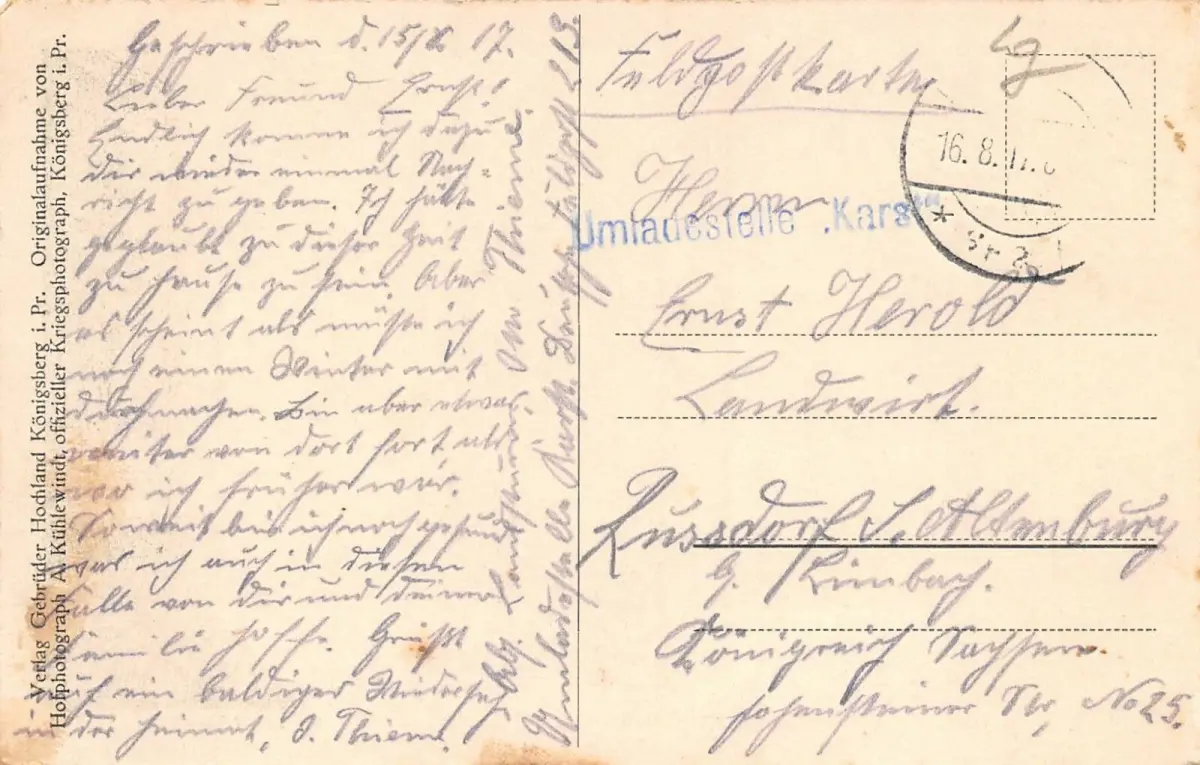 Verlag Gebrüder Hochland Königsberg i. Pr. Originalaufnahme von
Hofphotograph A. Kühlewindt, offizieller Kriegsphotograph, Königsberg i. Pr.
Geschrieben d. 15/8. 17.
Lieber Freund Ernst!
Endlich komme ich dazu
dir wieder einmal Nach-
richt zu geben. Ich hätte
geglaubt zu dieser Zeit
zu hause zu sein Aber
es scheint als müste ich
noch einen Winter mit
durchmachen. Bin aber etwas
weiter von dort fort als
wo ich früher war.
Soweit bin ich noch gesund
was ich auch in diesen
Falle von dir und deiner
Familie hoffe. Grüßt
auf ein baldiges Wiederseh
in der heimat, O. Thieme.
Otto Thieme.
Umladestelle Karst. Deutsche Feldpost 213.
Feldpostkarte
16. 8. 17.
Umladestelle „Karst"
Herrn
Ernst Herold
Landwirt.
Russdorf S. Altenburg
b. Limbach.
Königreich Sachsen.
Hohensteiner Str. No 25.